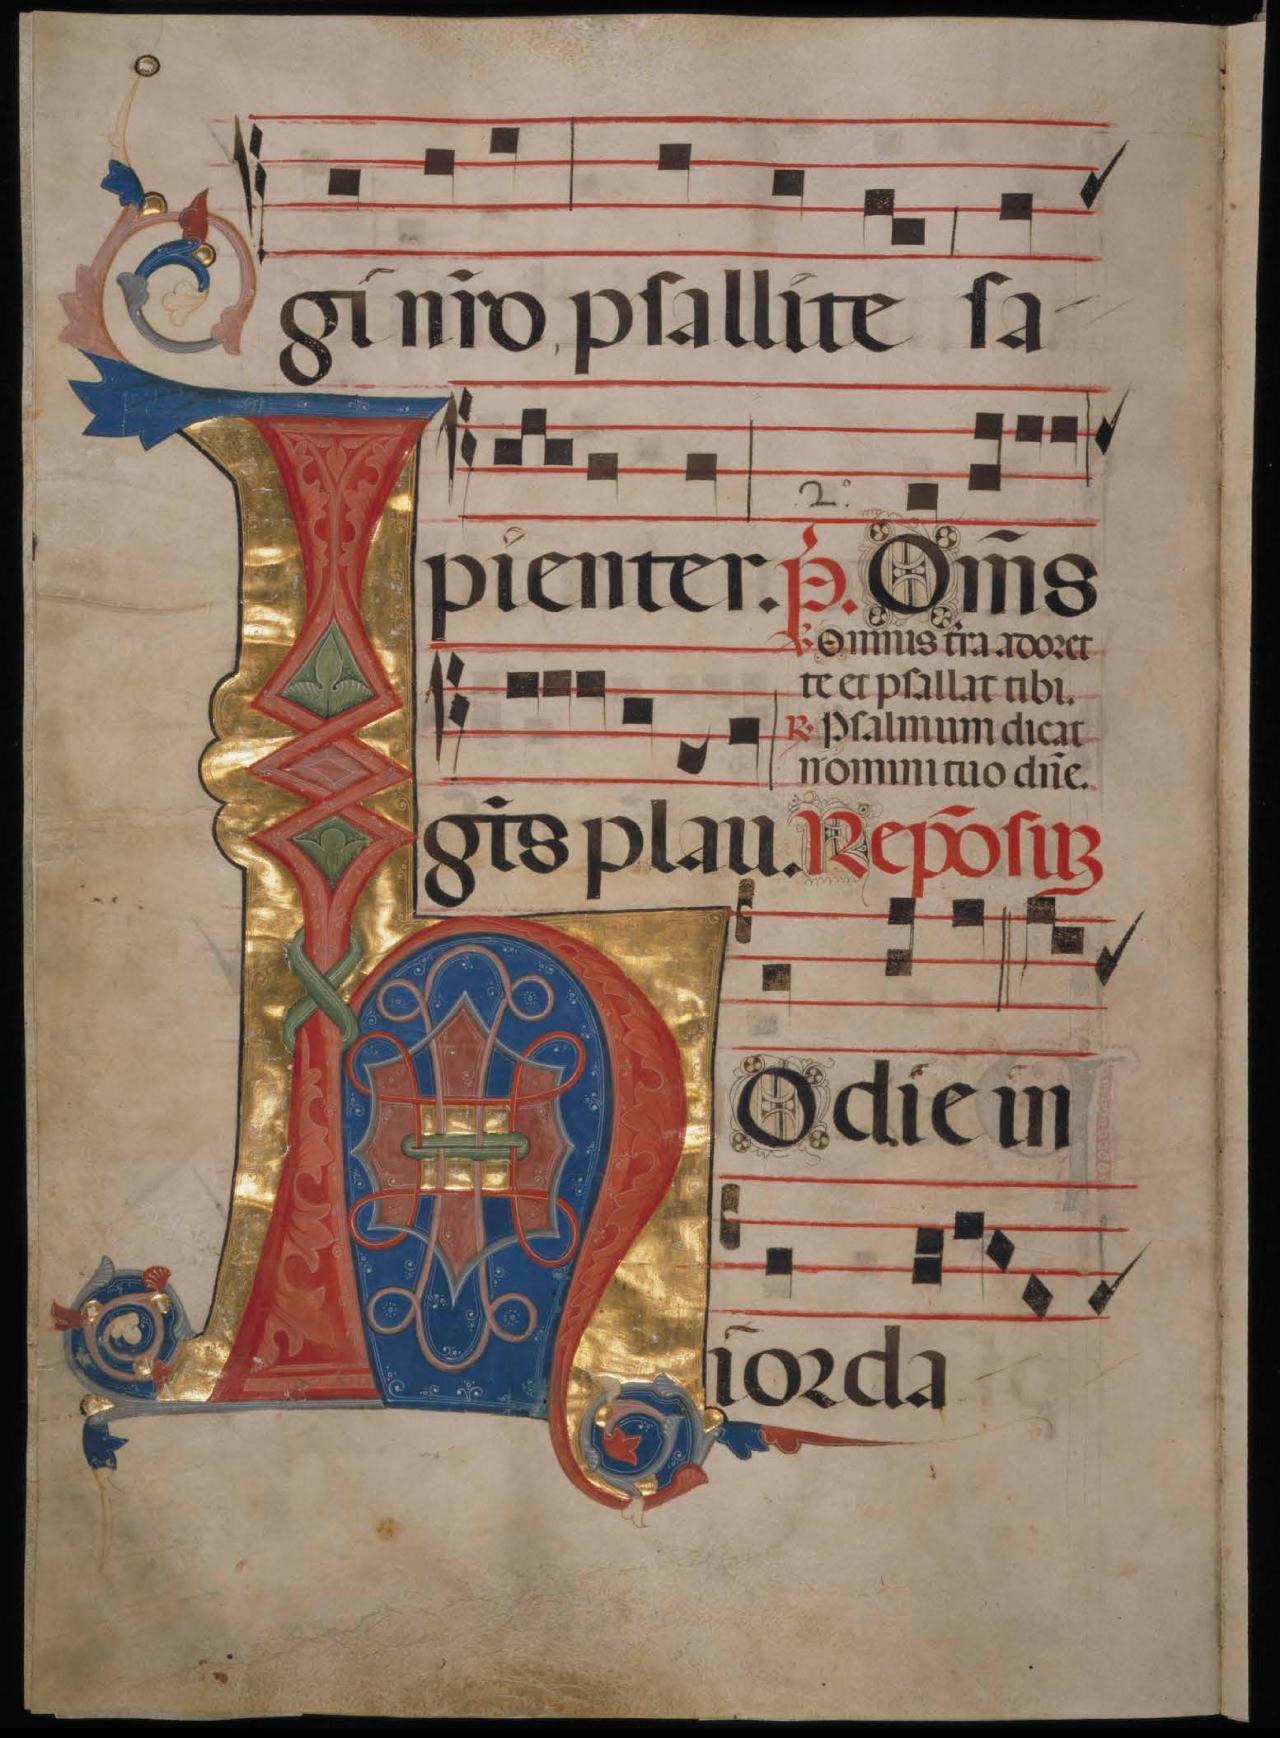 gi nr̄o psallite sa
2.
pienter. p̄s. Om̄s
℣. Omnis tr̄a adoret
te et psallat tibi.
℟. Psalmum dicat
nomini tuo dn̄e.
gt̄s plau. Rep̄osiꝝ
Hodie in
iorda